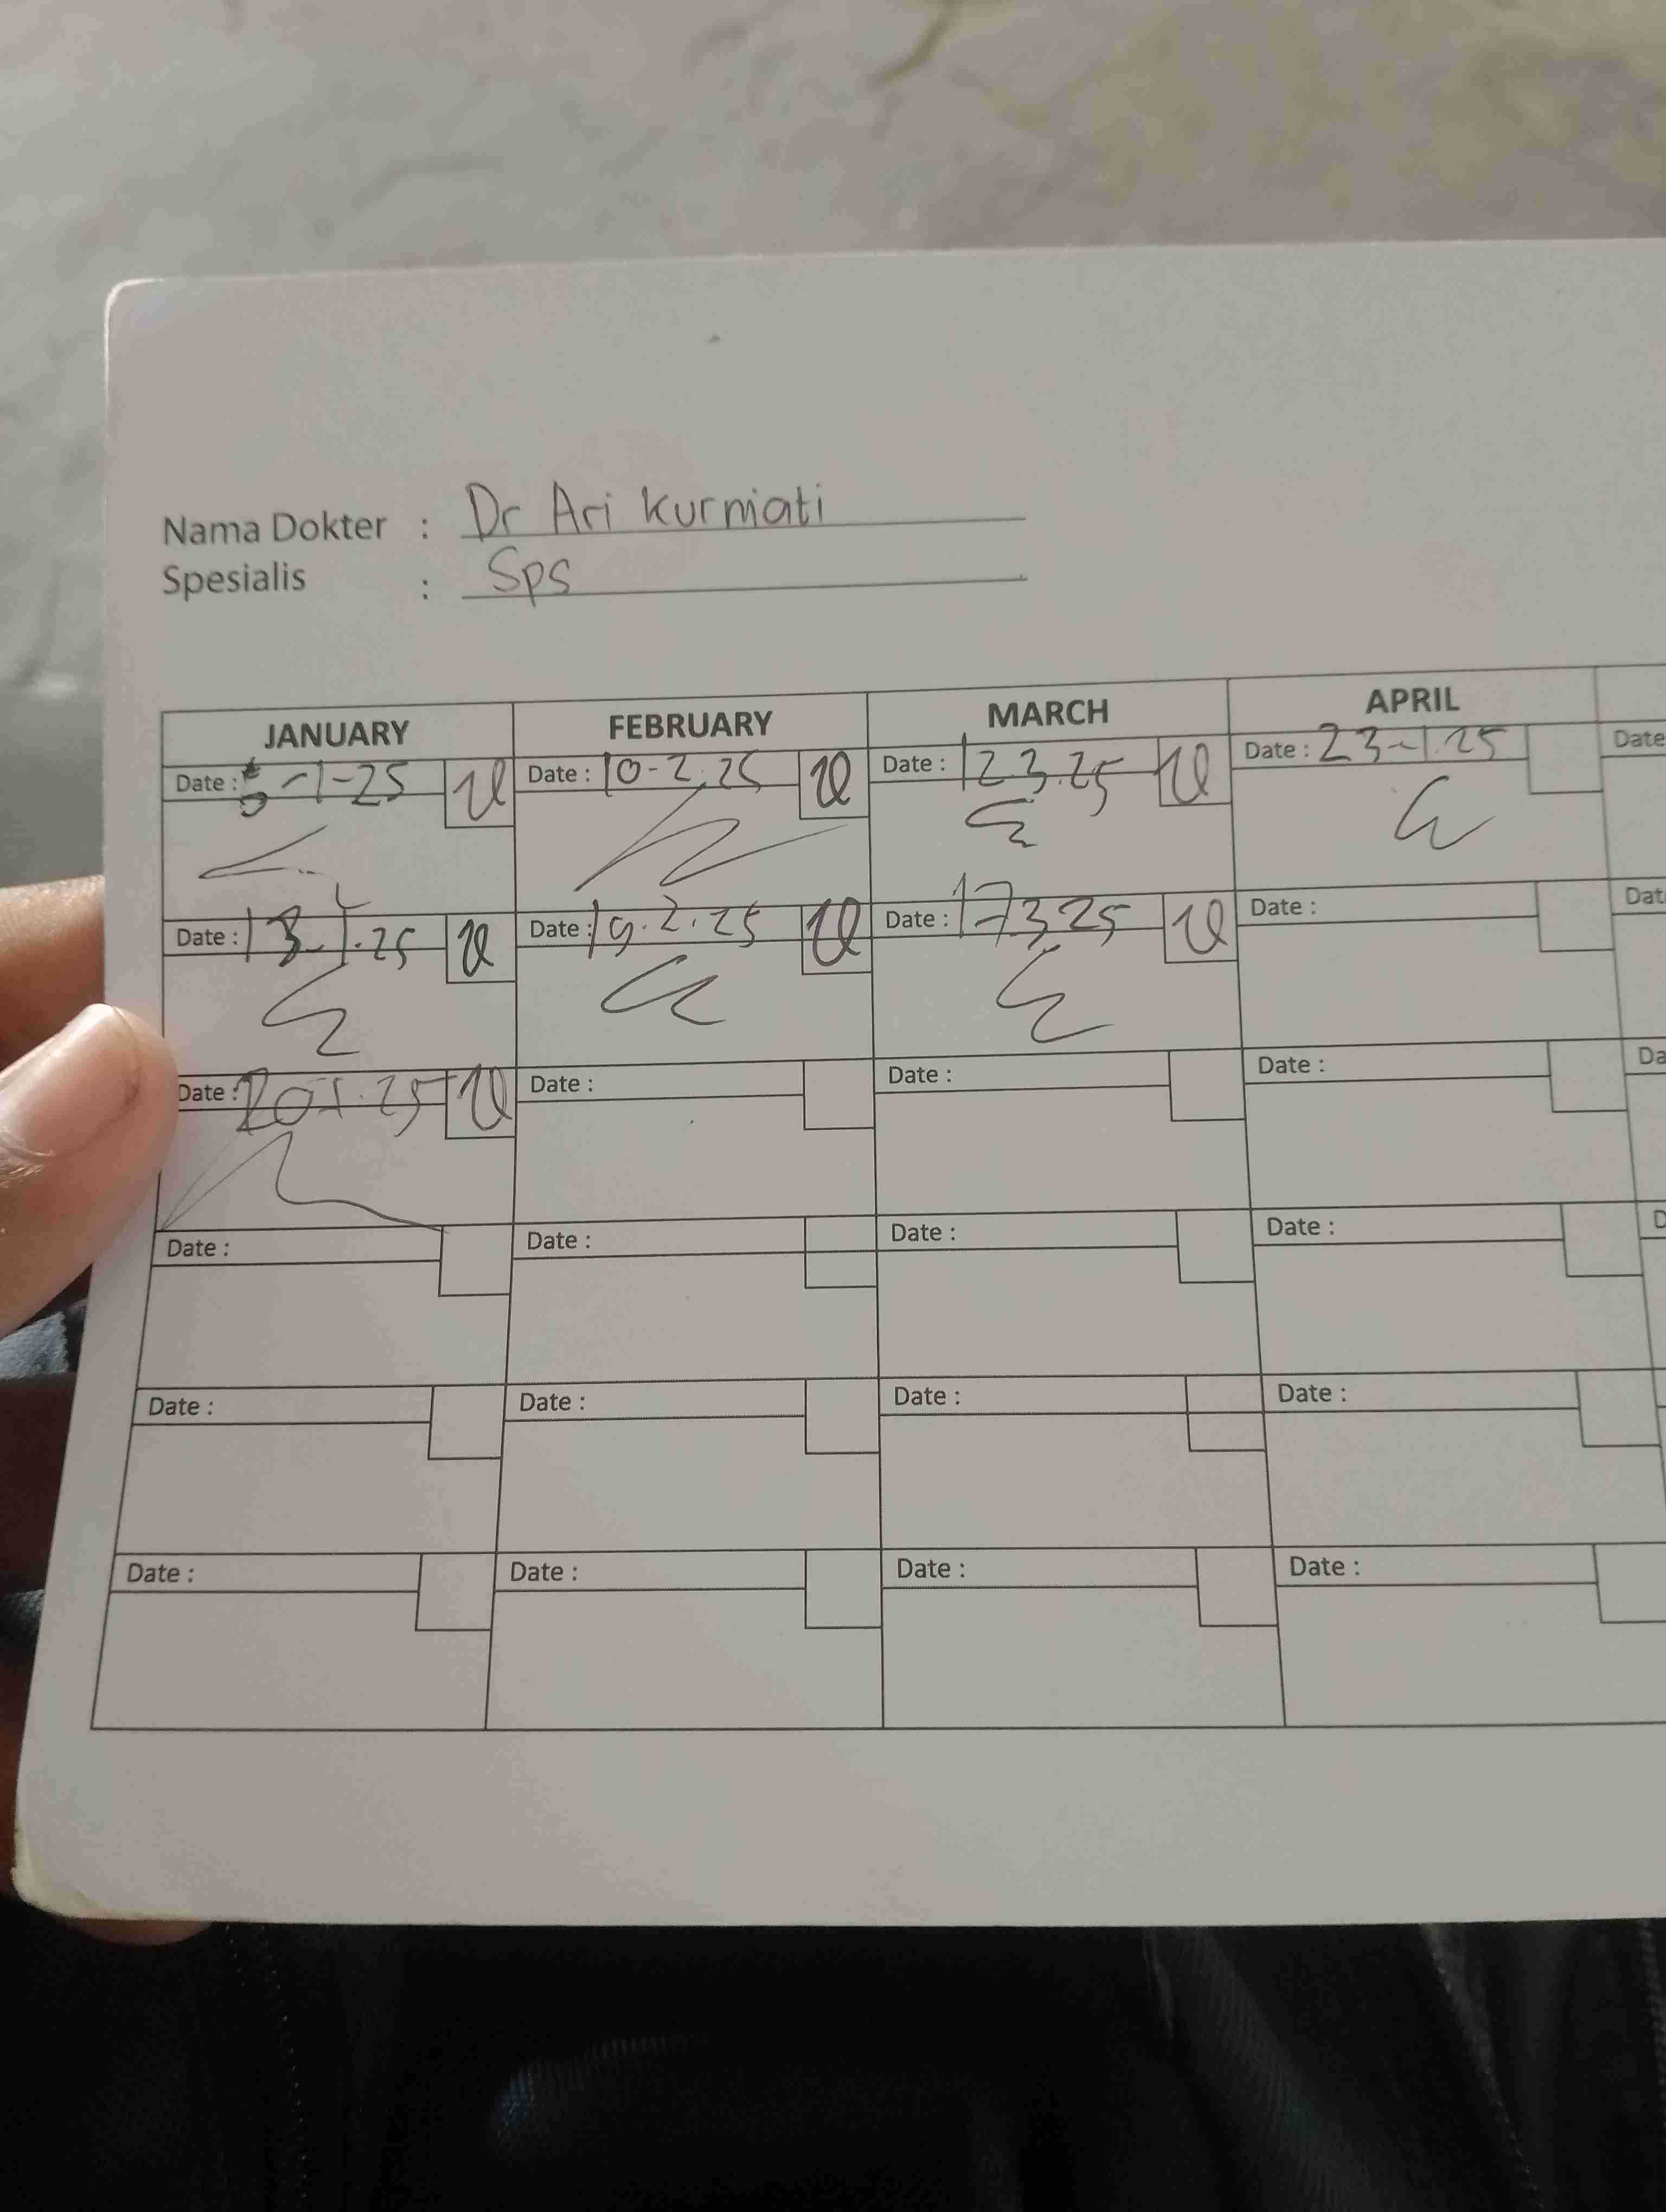 Nama Dokter : Dr Ari Kurniati
Spesialis : Sps
JANUARY FEBRUARY MARCH APRIL
Date : 5-1-25 Date : 10-2.25 Date : 12.3.25 Date : 23-1.25 Date
Date : 13-1.25 Date : 19.2.25 Date : 17.3.25 Date : Dat
Date : 20-1.25 Date : Date : Date : Da
Date : Date : Date : Date : D
Date : Date : Date : Date :
Date : Date : Date : Date :